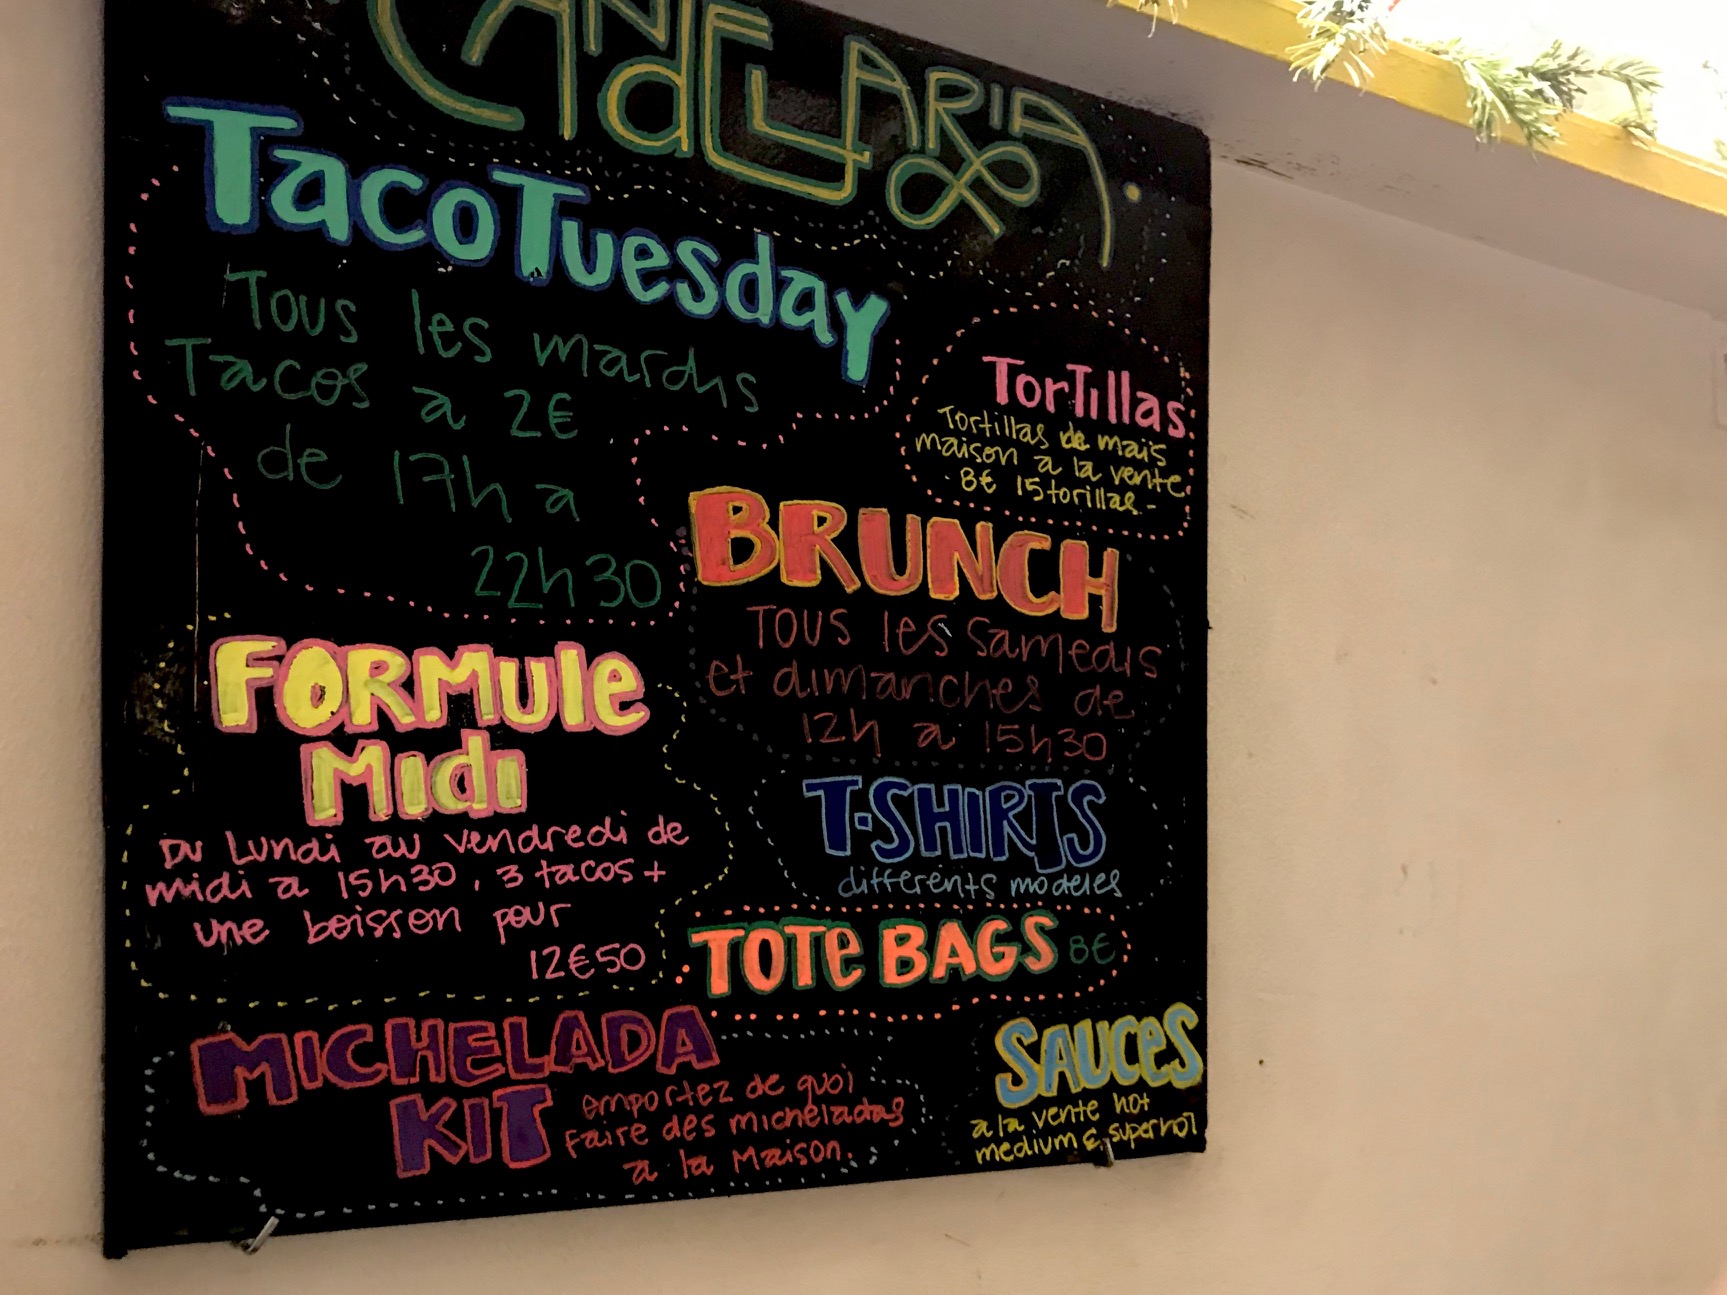 CANdELARIA
TacoTuesday
Tous les mardis
Tacos a 2€
de 17h a
22h30
TorTillas
Tortillas de maïs
maison a la vente
8€ 15 torillas -
BRUNCH
TOUS les samedis
et dimanches de
12h a 15h30
FORMUle
Midi
Du Lundi au vendredi de
midi a 15h30, 3 tacos +
une boisson pour
12€50
T-SHIRTS
differents modeles
TOTe BAGS 8€
MICHELADA
KIT
emportez de quoi
faire des micheladas
a la Maison.
SAUCeS
a la vente hot
medium & superhot